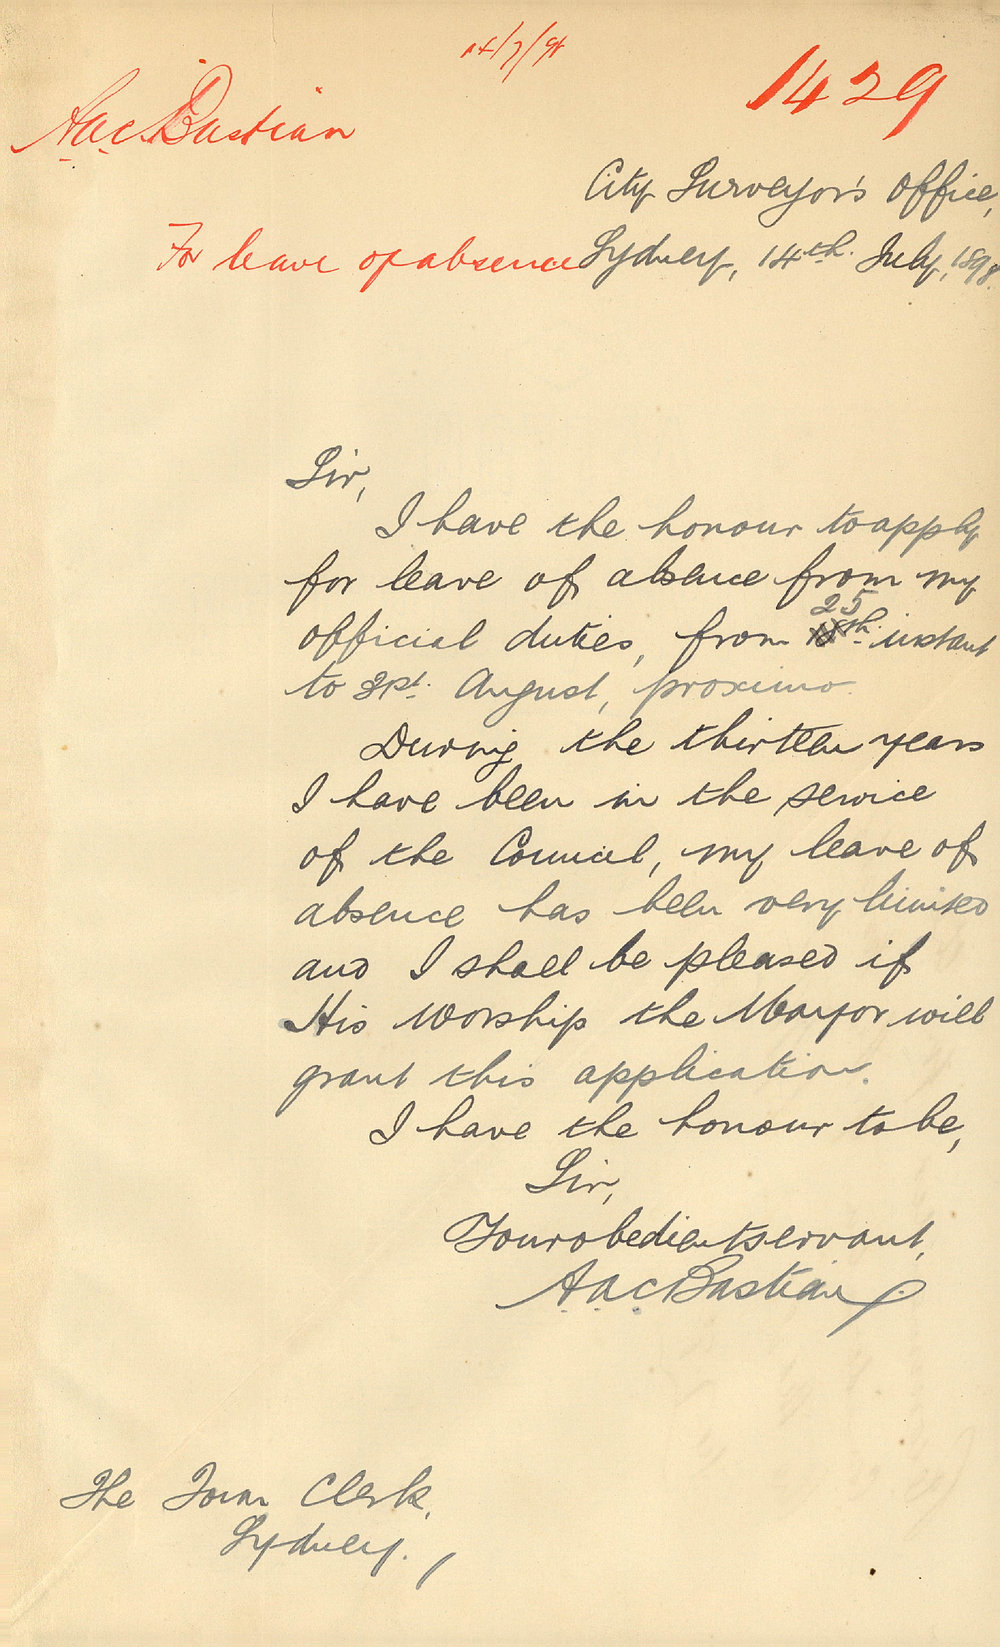 14/7/98
1429
A.A.C. Bastian
City Surveyor's Office,
For leave of absence
Sydney, 14th. July, 1898.
Sir,
I have the honour to apply
for leave of absence from my
25
official duties, from 18th. instant
to 31st. August, proximo.
During the thirteen years
I have been in the service
of the Council, my leave of
absence has been very limited
and I shall be pleased if
His Worship the Mayor will
grant this application.
I have the honour to be,
Sir,
Your obedient servant,
A.A.C. Bastian
The Town Clerk,
Sydney.